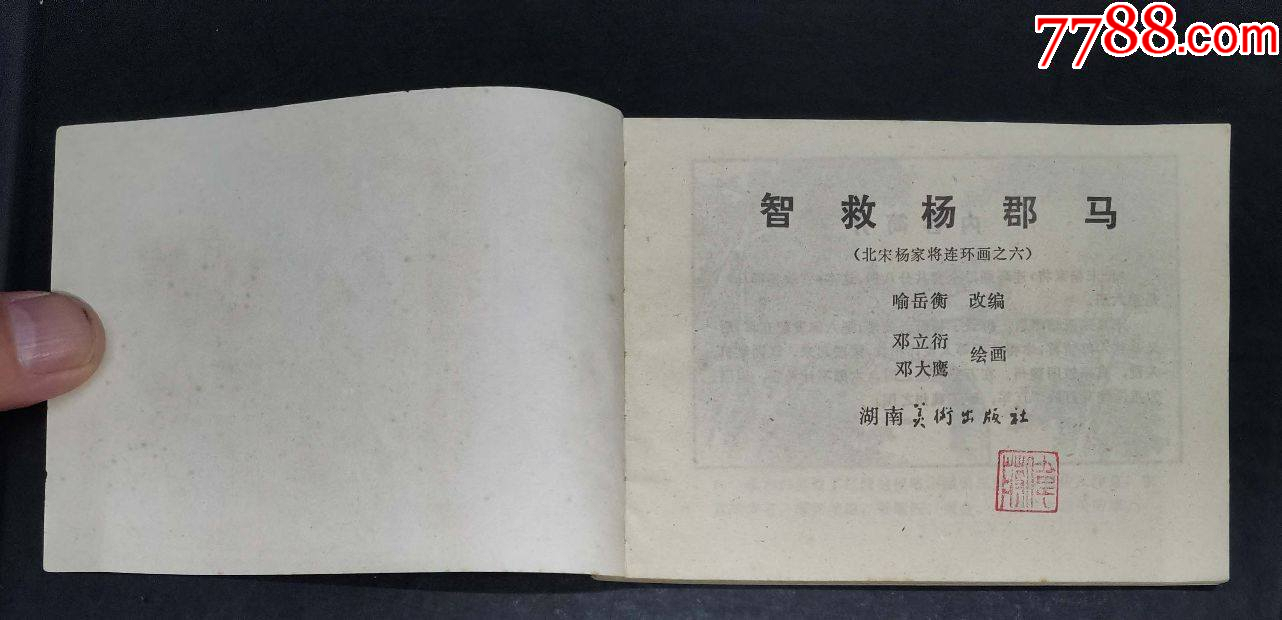 7788.com
智救杨郡马
（北宋杨家将连环画之六）
喻岳衡 改编
邓立衍
邓大鹰 绘画
湖南美術出版社